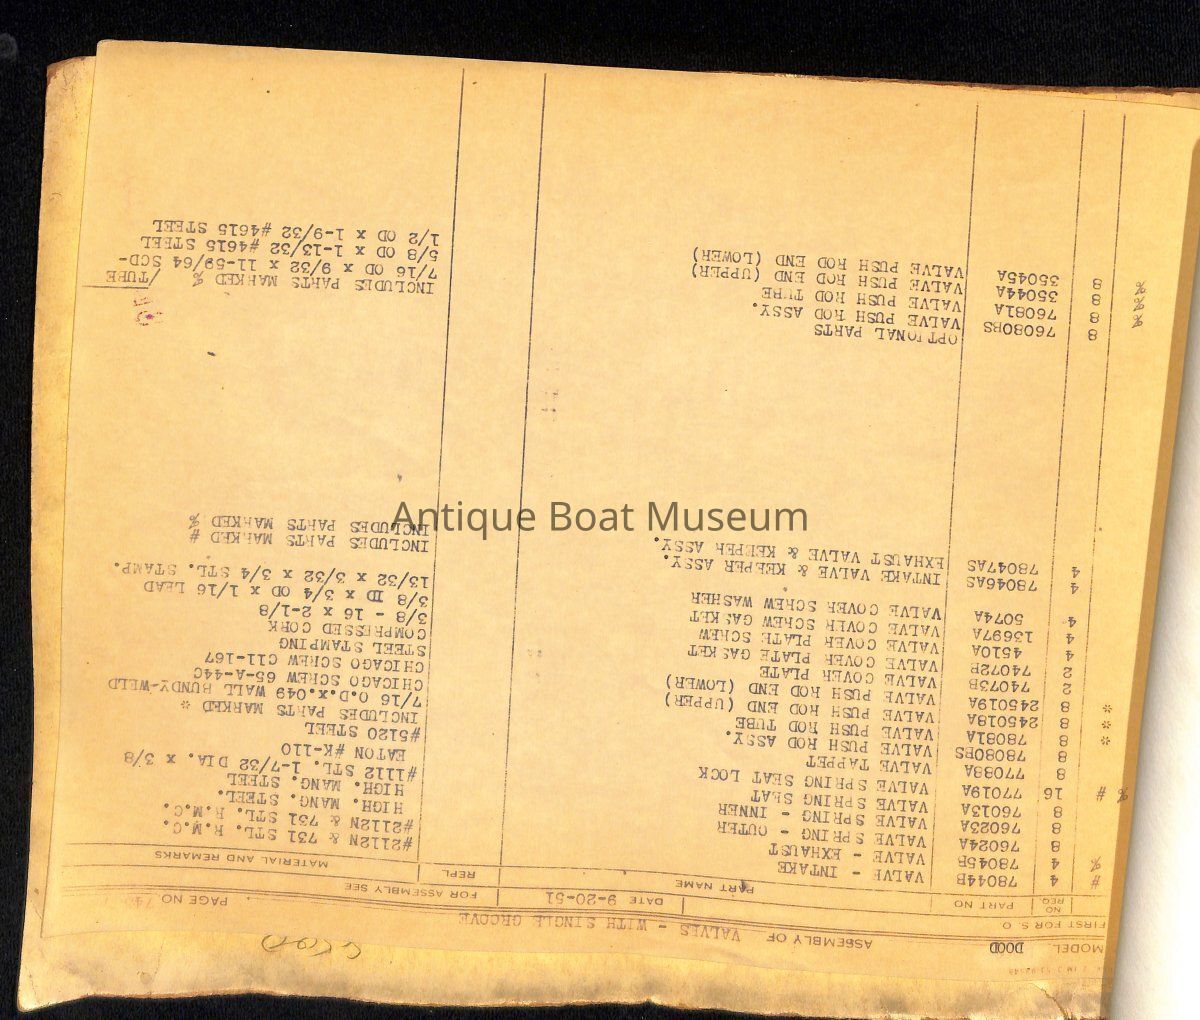 MODEL DOOD ASSEMBLY OF VALVES - WITH SINGLE GROOVE
FIRST FOR S. O DATE 9-20-51 FOR ASSEMBLY SEE PAGE NO.
NO. REQ. PART NO PART NAME REPL MATERIAL AND REMARKS
# 4 78044B VALVE - INTAKE #2112N & 731 STL. R.M.C.
% 4 78045B VALVE - EXHAUST #2112N & 731 STL. R.M.C.
8 76024A VALVE SPRING - OUTER HIGH. MANG. STEEL.
8 76023A VALVE SPRING - INNER HIGH. MANG. STEEL
8 76013A VALVE SPRING SEAT #1112 STL. 1-7/32 DIA. x 3/8
% # 16 77019A VALVE SPRING SEAT LOCK EATON #K-110
8 77038A VALVE TAPPET #5120 STEEL
8 78080BS VALVE PUSH ROD ASSY. INCLUDES PARTS MARKED *
* 8 78081A VALVE PUSH ROD TUBE 7/16 O.D.x.049 WALL BUNDY-WELD
* 8 245018A VALVE PUSH ROD END (UPPER) CHICAGO SCREW 65-A-44C
* 8 245019A VALVE PUSH ROD END (LOWER) CHICAGO SCREW C11-167
2 74073B VALVE COVER PLATE STEEL STAMPING
2 74072B VALVE COVER PLATE GASKET COMPRESSED CORK
4 4510A VALVE COVER PLATE SCREW 3/8 - 16 x 2-1/8
4 13697A VALVE COVER SCREW GASKET 3/8 ID x 3/4 OD x 1/16 LEAD
4 5074A VALVE COVER SCREW WASHER 13/32 x 3/32 x 3/4 STL. STAMP.
4 78046AS INTAKE VALVE & KEEPER ASSY. INCLUDES PARTS MARKED #
4 78047AS EXHAUST VALVE & KEEPER ASSY. INCLUDES PARTS MARKED %
Antique Boat Museum
OPTIONAL PARTS
8 76080BS VALVE PUSH ROD ASSY. INCLUDES PARTS MARKED % /TUBE
% 8 76081A VALVE PUSH ROD TUBE 7/16 OD x 9/32 x 11-59/64 SCD-
% 8 35044A VALVE PUSH ROD END (UPPER) 5/8 OD x 1-13/32 #4615 STEEL
% 8 35045A VALVE PUSH ROD END (LOWER) 1/2 OD x 1-9/32 #4615 STEEL